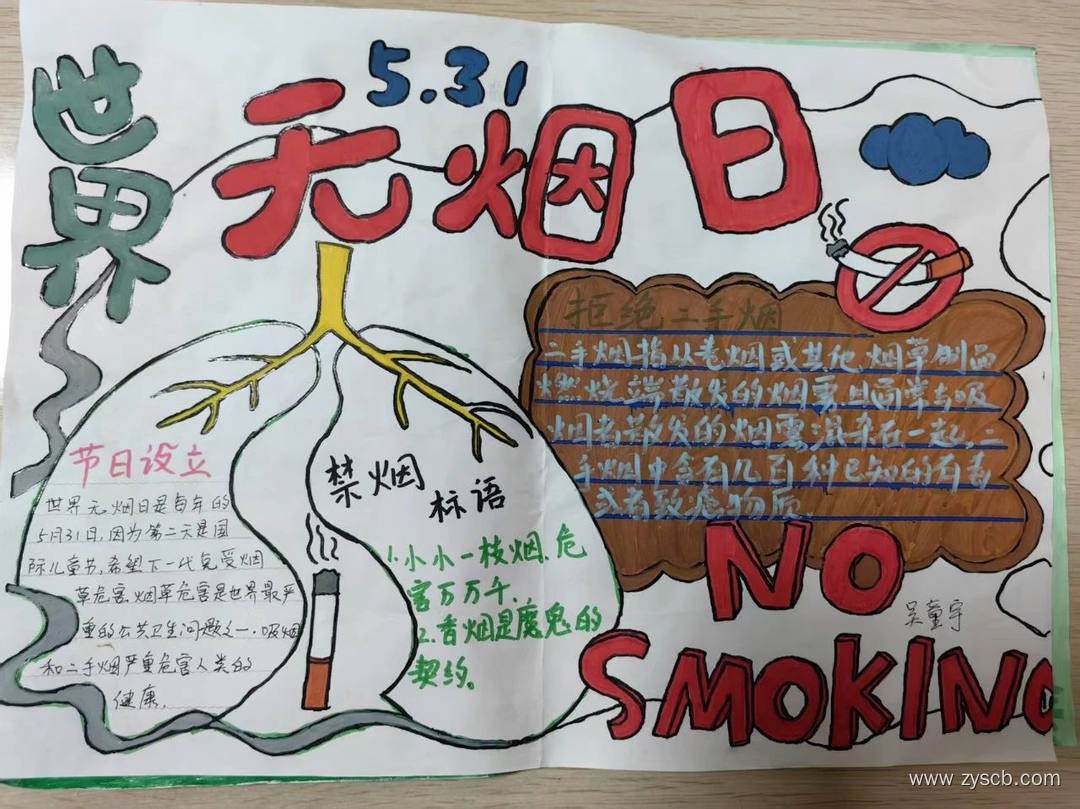 世界
5.31
无烟日
节日设立
世界无烟日是每年的
5月31日,因为第二天是国
际儿童节,希望下一代免受烟
草危害.烟草危害是世界最严
重的公共卫生问题之一.吸烟
和二手烟严重危害人类的
健康.
禁烟
标语
1.小小一枝烟,危
害万万千.
2.香烟是魔鬼的
契约。
拒绝二手烟
二手烟指从卷烟或其他烟草制品
燃烧端散发的烟雾且通常与吸
烟者散发的烟雾混杂在一起,二
手烟中含有几百种已知的有毒
或者致癌物质.
NO
吴童宇
SMOKING
www.zyscb.com